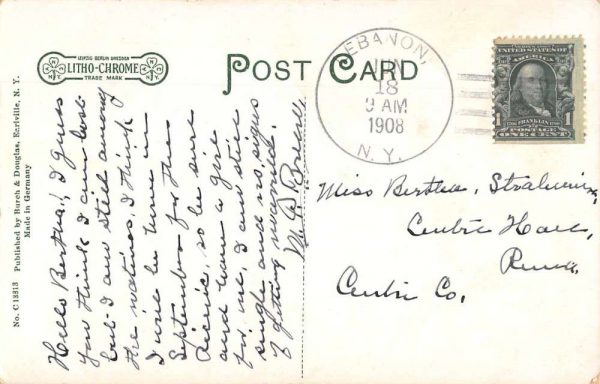 LEIPZIG BERLIN DRESDEN
LITHO-CHROME
TRADE MARK
N.Y.
N.Y.
POST CARD
LEBANON,
JUN
18
9 AM
1908
N. Y.
UNITED STATES OF
AMERICA
1706 FRANKLIN 1790
1 POSTAGE 1
ONE CENT
Published by Burch & Douglas, Earlville, N. Y.
Made in Germany
No. C 13313
Hello Bertha! I guess
you think I am lost
but I am still among
the natives, I think
I will be home in
September for the
Picnic, so be sure
and have a girl
for me, I am still
single and no signs
of getting married.
Miss Bertha
Centre Hall,
Penna.
Centre Co.